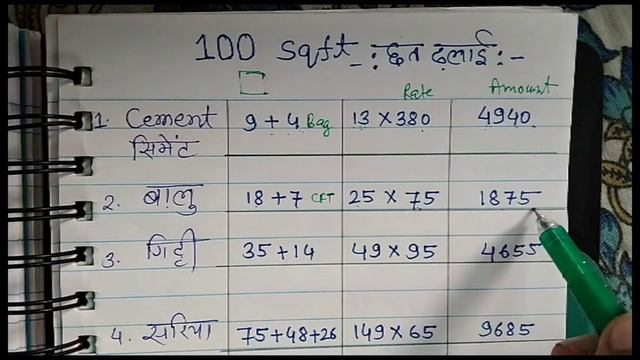 100 Sqft - : छत ढलाई : -
Rate Amount
1. Cement 9 + 4 Bag 13 × 380 4940
सिमेंट
2. बालु 18 + 7 CFT 25 × 75 1875
3. गिट्टी 35 + 14 49 × 95 4655
4. सरिया 75 + 48 + 26 149 × 65 9685